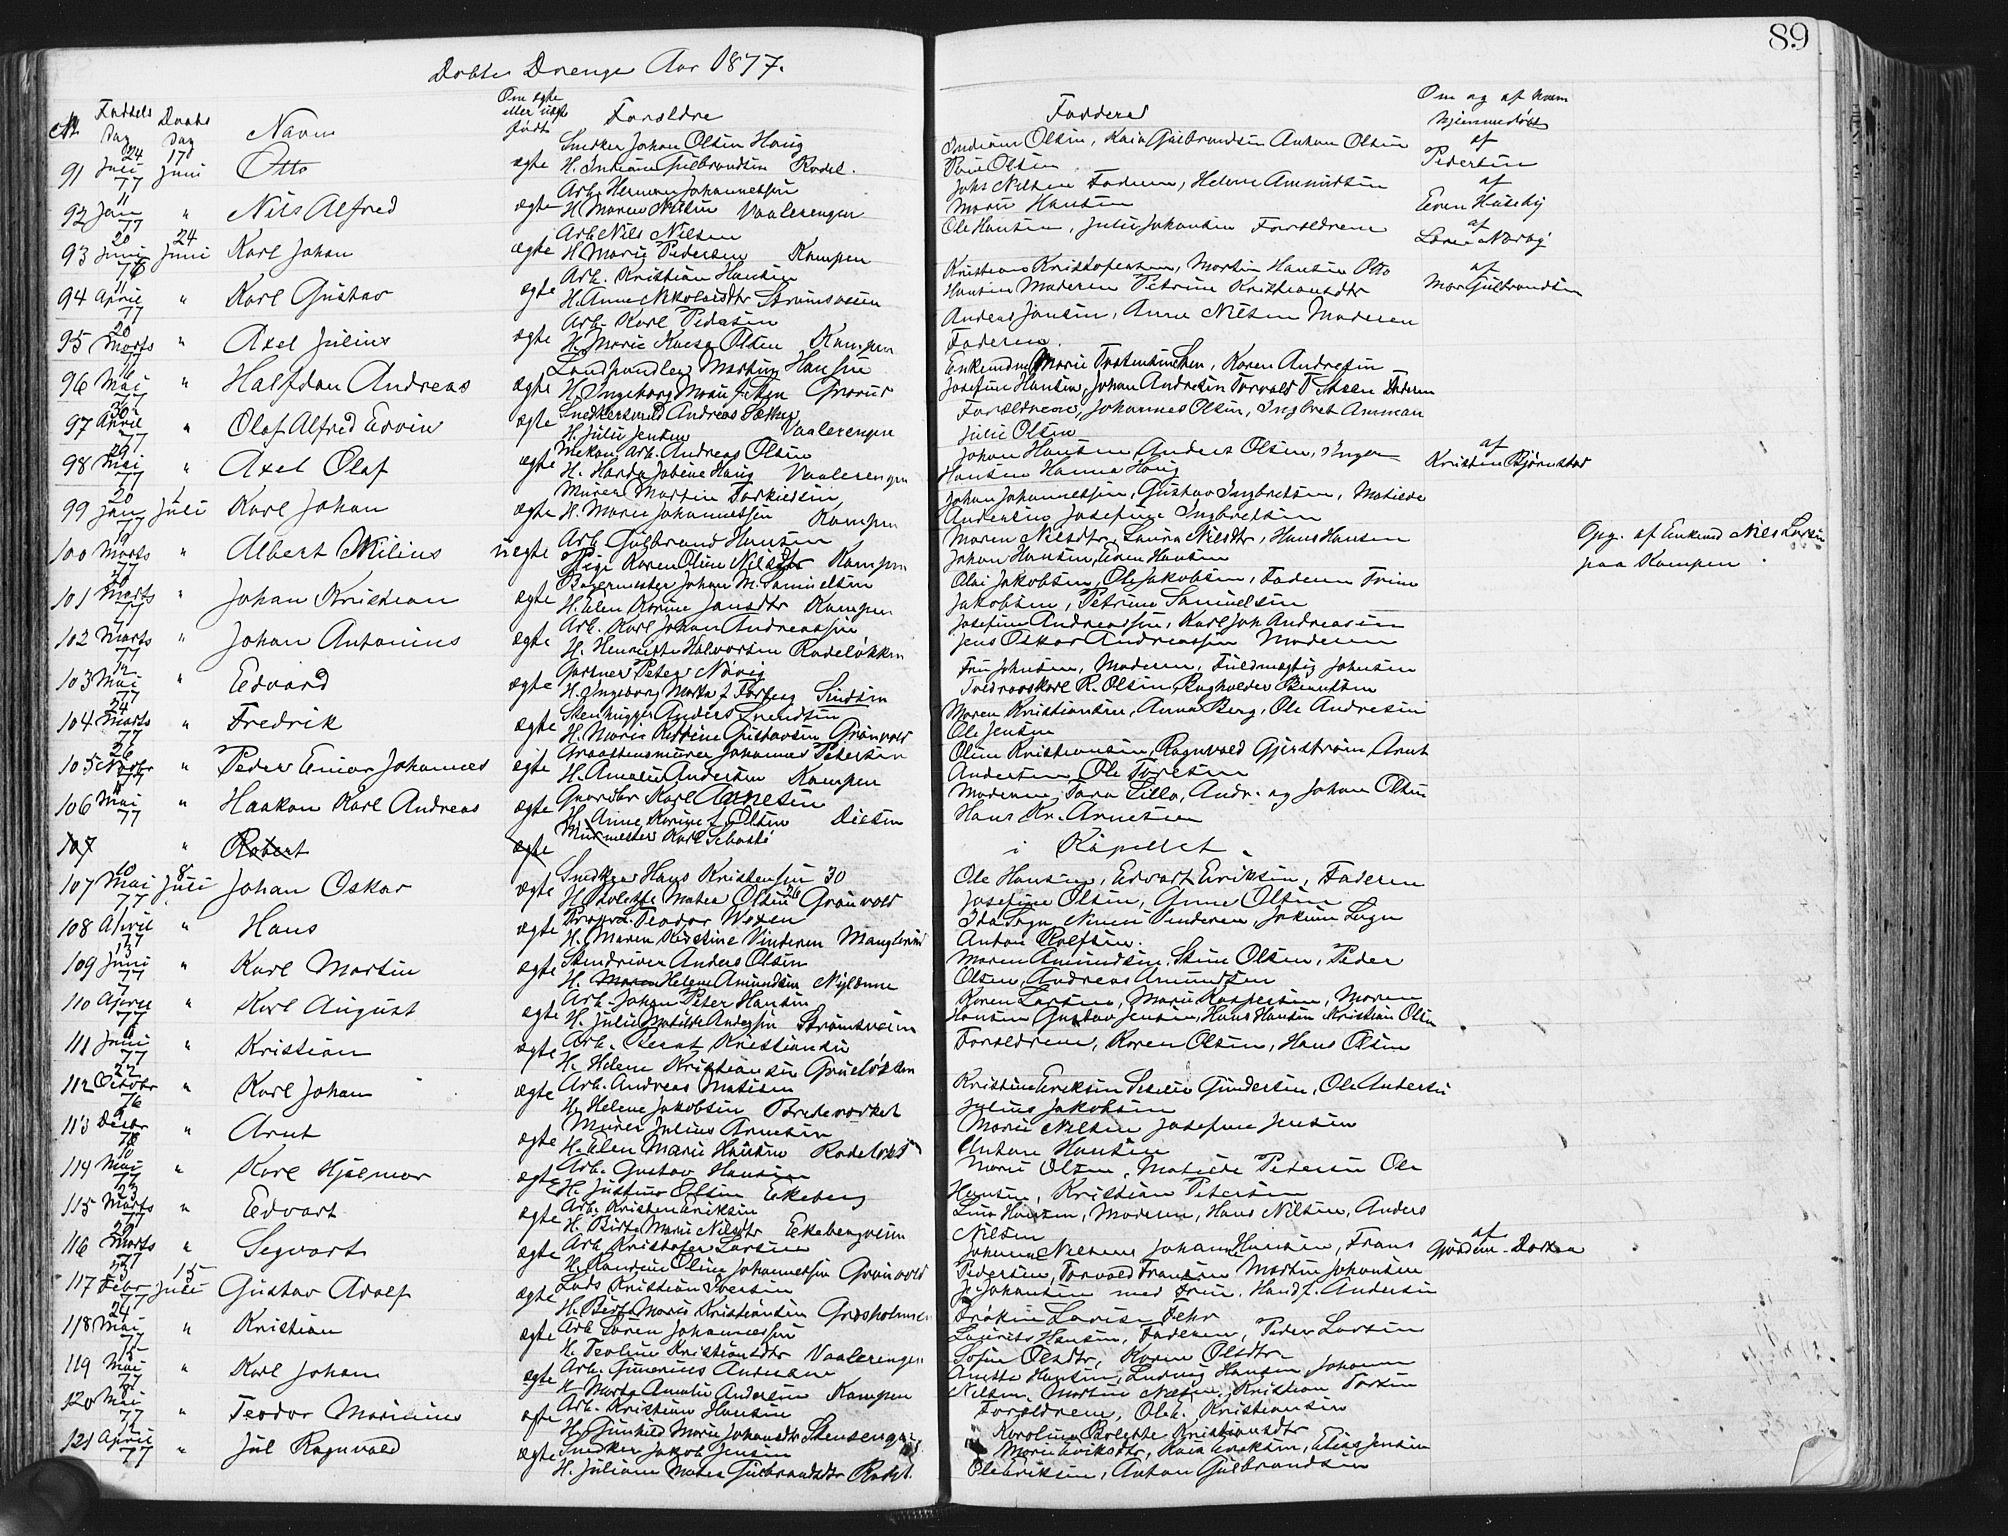 89
Døbte Drenge Aar 1877.
No Fødsels Dag Daabs Dag Navn Om ægte eller uægte født Forældre Faddere Om og af hvem hjemmedøbt
91 24 Juli 77 17 Juni Otto ægte Snedker Johan Olsen Haug
H. Indiane Gulbrandsen Rodel.
Indiane Olsen, Kaia Gulbrandsen Anton Olsen
Olsen
af Pedersen
92 11 Jan 77 " Nils Alfred ægte Arb. Herman Johannessen
H. Maren Nilsen Vaalerengen
Johs Nilsen Faderen, Helene Amundsen
Marie Hansen
af Even Huseby
93 20 Juni 76 24 Juni Karl Johan ægte Arb. Nils Nilsen
H. Marie Pedersen Kampen
Ole Hansen, Julie Johansen Forældrene
af Norby
94 11 April 77 " Karl Gustav ægte Arb. Kristian Hansen
H. Anne Nikolaisdtr Strømsveien
Kristians Kristofersen, Martin Hansen Otto
Hansen Moderen Petrine Kristiansdtr
af Mar Gulbrandsen
95 20 Marts 77 " Axel Julius ægte Arb. Karl Pedersen
H. Marie Kaesa Olsen Kampen
Anders Jansen, Anna Nilsen Moderen
Faderen.
96 16 Mai 77 " Halfdan Andreas ægte Landhandler Martin Hansen
H. Ingeborg Marie Grorud
Enkemdm Marie, Karen Andresen
Josefine Hansen, Johan Andresen Torvald Faderen
97 30 April 77 " Olaf Alfred Edvin ægte Snedkersvend Andreas
H. Julie Jensen Vaalerengen
Forældrene, Johannes Olsen, Ingbret Amman
Julie Olsen
98 29 Mai 77 " Axel Olaf ægte Mekan. Arb. Andreas Olsen
H. Harda Jobine Haug Vaalerengen
Johan Hansen Anders Olsen, Inger
Hansen Hanna Haug
af Kristen Bjørnstad
99 20 Jan 77 1 Juli Karl Johan ægte Murer Martin Torkildsen
H. Marie Johannessen Kampen
Johan Johannessen, Gustav Ingbretsen, Matilde
Andersens Josefine Ingbretsen
100 9 Marts 77 " Albert Milius uægte Arb. Gulbrand Hansen
Pige Karen Oline Nilsdtr Kampen
Maren Nilsdtr, Laura Nilsdtr, Hans Hansen
Johan Hansen, Even Hansen
Opg. af Enkemd Nils Larsen
paa Kampen.
101 Marts 77 " Johan Kristian ægte Bogermester Johan M. Samuelsen
H. Elen Karine Jansdtr Kampen
Olai Jakobsen, Ole Jakobsen, Faderen Trine
Jakobsen, Petrine Samuelsen
102 7 Marts 77 " Johan Antonius ægte Arb. Karl Johan Andreassen
H. Henriette Halvorsen Rodeløkken
Josefine Andreassen, Karl Joh Andreassen
Jens Oskar Andreassen Moderen
103 12 Mai 77 " Edvard ægte Gartner Peter Nøvig
H. Ingeborg Marta f Forberg Sindsen
Fru Johnsen, Moderen, Fuldmægtig Johnsen
R. Olsen, Bogholder Berntsen
104 24 Marts 77 " Fredrik ægte Stenhugger Anders Svendsen
H. Marie Petrine Gustavsen Grønvold
Maren Kristiansen, Anna Berg, Ole Andresen
Ole Jensen
105 26 Novbr " Peder Einar Johannes ægte Graastensmurer Johannes Petersen
H. Amalie Andersen Kampen
Oline Kristiansen, Ragnvald Gjerstrøm Arnt
Andersen Ole Toresen
106 Mai 77 " Haakon Karl Andreas ægte Gaardbr Karl Arnesen
H. Anne Karine f Olsen Disen
Moderen, Tara Lilla, Andr. og Johan Olsen
Hans Kr. Arnesen
107 " Robert ægte Murmester Karl
i Kapellet
107 10 Mai 77 8 Juli Johan Oskar ægte Snedker Hans Kristensen 30
H. Bolette Matea Olsen 26 Grønvold
Ole Hansen, Edvart Eriksen, Faderen
Josefine Olsen, Anne Olsen
108 April 77 " Hans ægte Teodor Woxen
H. Maren Kirstine Vinderen Manglerud
Ida Sogn Vinderen, Joakim Sogn
Anton Rolfsen.
109 13 Juni 77 " Karl Martin ægte Stendriver Anders Olsen
H. Maren Helene Amundsen Nylænne
Maren Amundsen, Stine Olsen, Peder
Olsen, Andreas Amundsen
110 7 April 77 " Karl August ægte Arb. Johan Peter Hansen
H. Julie Matilde Andersen Strømsveien
Karen Larsen, Marie Kaspersen, Maren
Hansen Gustav Jensen, Hans Hansen Kristian Olsen
111 6 Juni 77 " Kristian ægte Arb. Bernt Kristiansen
H. Helene Kristiansen Grueløkken
Forældrene, Karen Olsen, Hans Olsen
112 22 Octobr 76 " Karl Johan ægte Arb. Andreas Matisen
H. Helene Jakobsen Bredemarket
Kristine Eriksen Gundersen, Ole Andersen
Julius Jakobsen
113 9 Decbr 76 " Arnt ægte Murer Julius Arnesen
H. Elen Marie Hansen Rodeløk
Marie Nilsen Josefine Jensen
Anton Hansen
114 10 Mai 77 " Karl Hjalmar ægte Arb. Gustav Hansen
H. Justine Olsen Ekeberg
Marie Olsen, Matilde Petersen Ole
Hansen, Kristian Petersen
115 23 Marts 77 " Edvart ægte Arb. Kristen Eriksen
H. Birte Marie Nilsdtr Ekebergveien
Lina Hansen, Moderen, Hans Nilsen, Anders
Nilsen
116 20 Marts 77 " Segvart ægte Arb. Kristofer Larsen
H. Randine Oline Johannessen Grønvold
Johanne Nilsens Johan Hansen, Frans
Pedersen, Torvald Fransen Martin Johansen
af Gjordem. Dorten
117 23 Febr 77 15 Juli Gustav Adolf ægte Lods Kristian Iversen
H. Berte Marie Kristiansen Græsholmen
J. Johansen med Frue. Handf. Andersen
Frøken Lovise Fehr
118 24 Mai 77 " Kristian ægte Arb Søren Johannessen
H. Teoline Kristiansdtr Vaalerengen
Laurits Hansen, Faderen, Peder Larsen
Sofie Olsdtr, Karen Olsdtr
119 15 Mai 77 " Karl Johan ægte Arb. Gunerius Andersen
H. Marte Amalie Andersen Kampen
Anette Hansen, Ludvig Hansen Johanne
Nilsen, Martin Nilsen, Kristian Larsen
120 Mai 77 " Teodor Marinius ægte Arb. Kristian Hansen
H. Gunhild Marie Johansdtr Stensengen
Forældrene, Ole E. Kristiansen
Karoline Bolette Kristiansdtr
121 April 77 " Jul Ragnvald ægte Snedker Jakob Jensen
H. Juliane Matea Gulbrandsdtr Rodel.
Marie Eriksdtr, Kaia Eriksen, Elias Jensen
Ole Eriksen, Anton Gulbrandsen